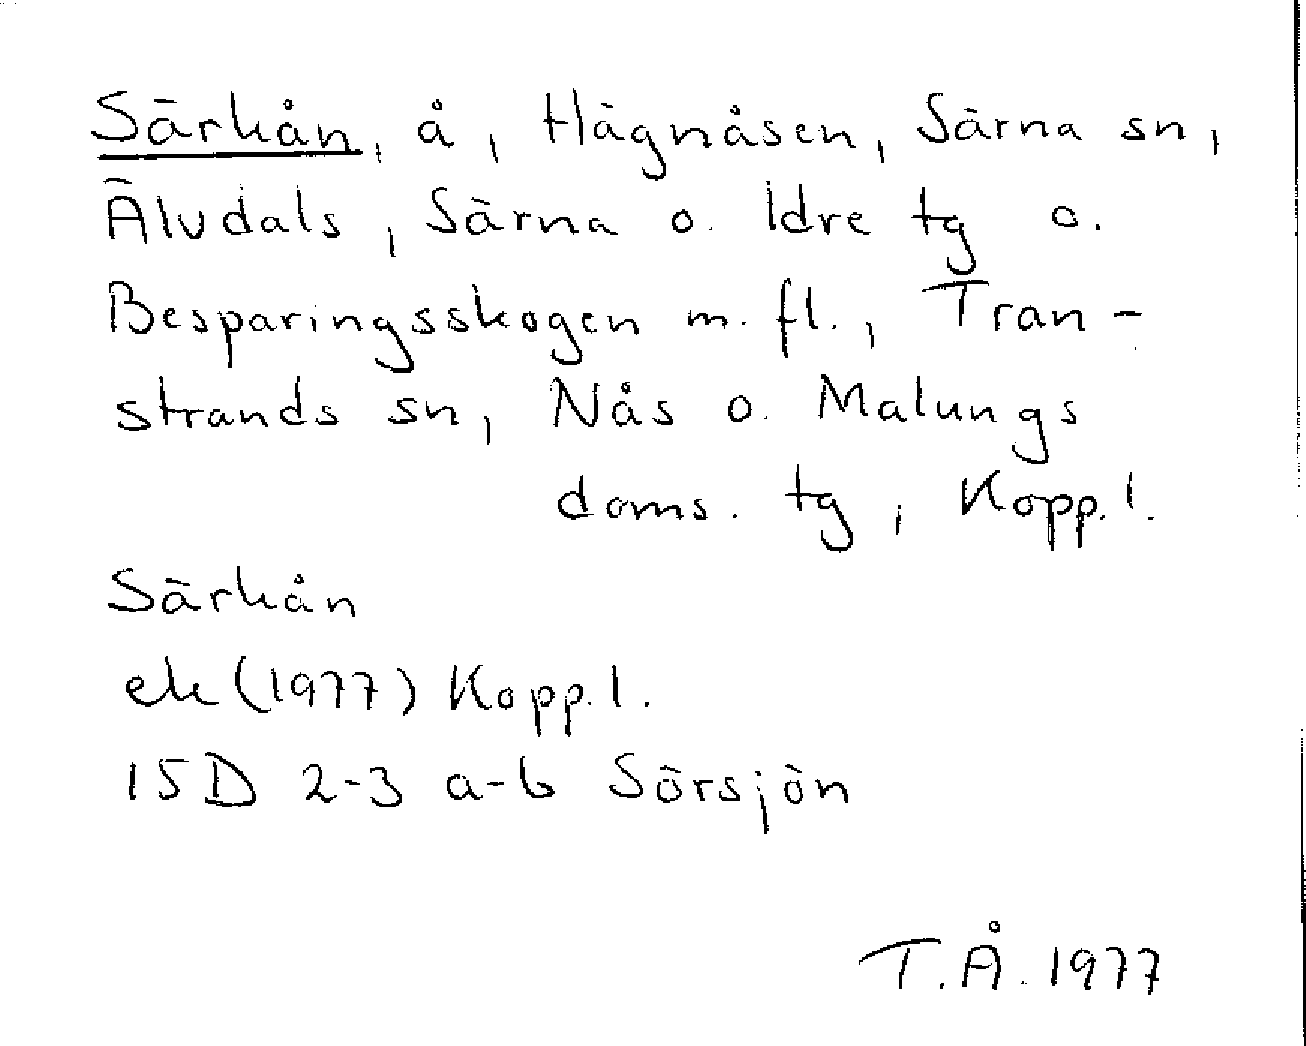 Särkån, å, Hägnåsen, Särna sn,
Älvdals, Särna o. Idre tg o.
Besparingsskogen m. fl., Tran-
strands sn, Nås o. Malungs
doms. tg, Kopp. l.
Särkån
ek (1977) Kopp. l.
15D 2-3 a-b Sörsjön
T.Å. 1977